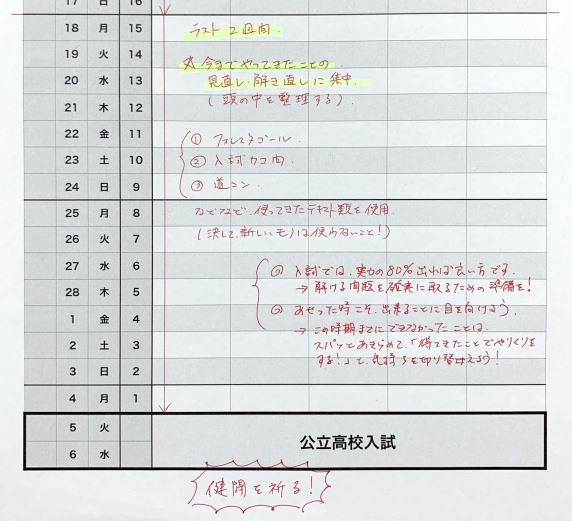 17 日 16
18 月 15 ラスト2週間
19 火 14 ☆今までやってきたことの
20 水 13 見直し・解き直しに集中
21 木 12 (頭の中を整理する)
22 金 11 ① フォレスタゴール
23 土 10 ② 入試カコ問
24 日 9 ③ 道コン
25 月 8 などなど、使ってきたテキスト類を使用
26 火 7 (決して、新しいモノは使わないこと!)
27 水 6 ◎ 入試では、実力の80%出れば良い方です。
28 木 5 → 解ける問題を確実に取るための準備を!
◎ あせった時こそ、出来ることに目を向けよう。
1 金 4 → この時期までにできなかったことは、
2 土 3 スパッとあきらめて、「得てきたことでやりくりを
3 日 2 する!」と、気持ちを切り替えよう!
4 月 1
5 火 公立高校入試
6 水
健闘を祈る!